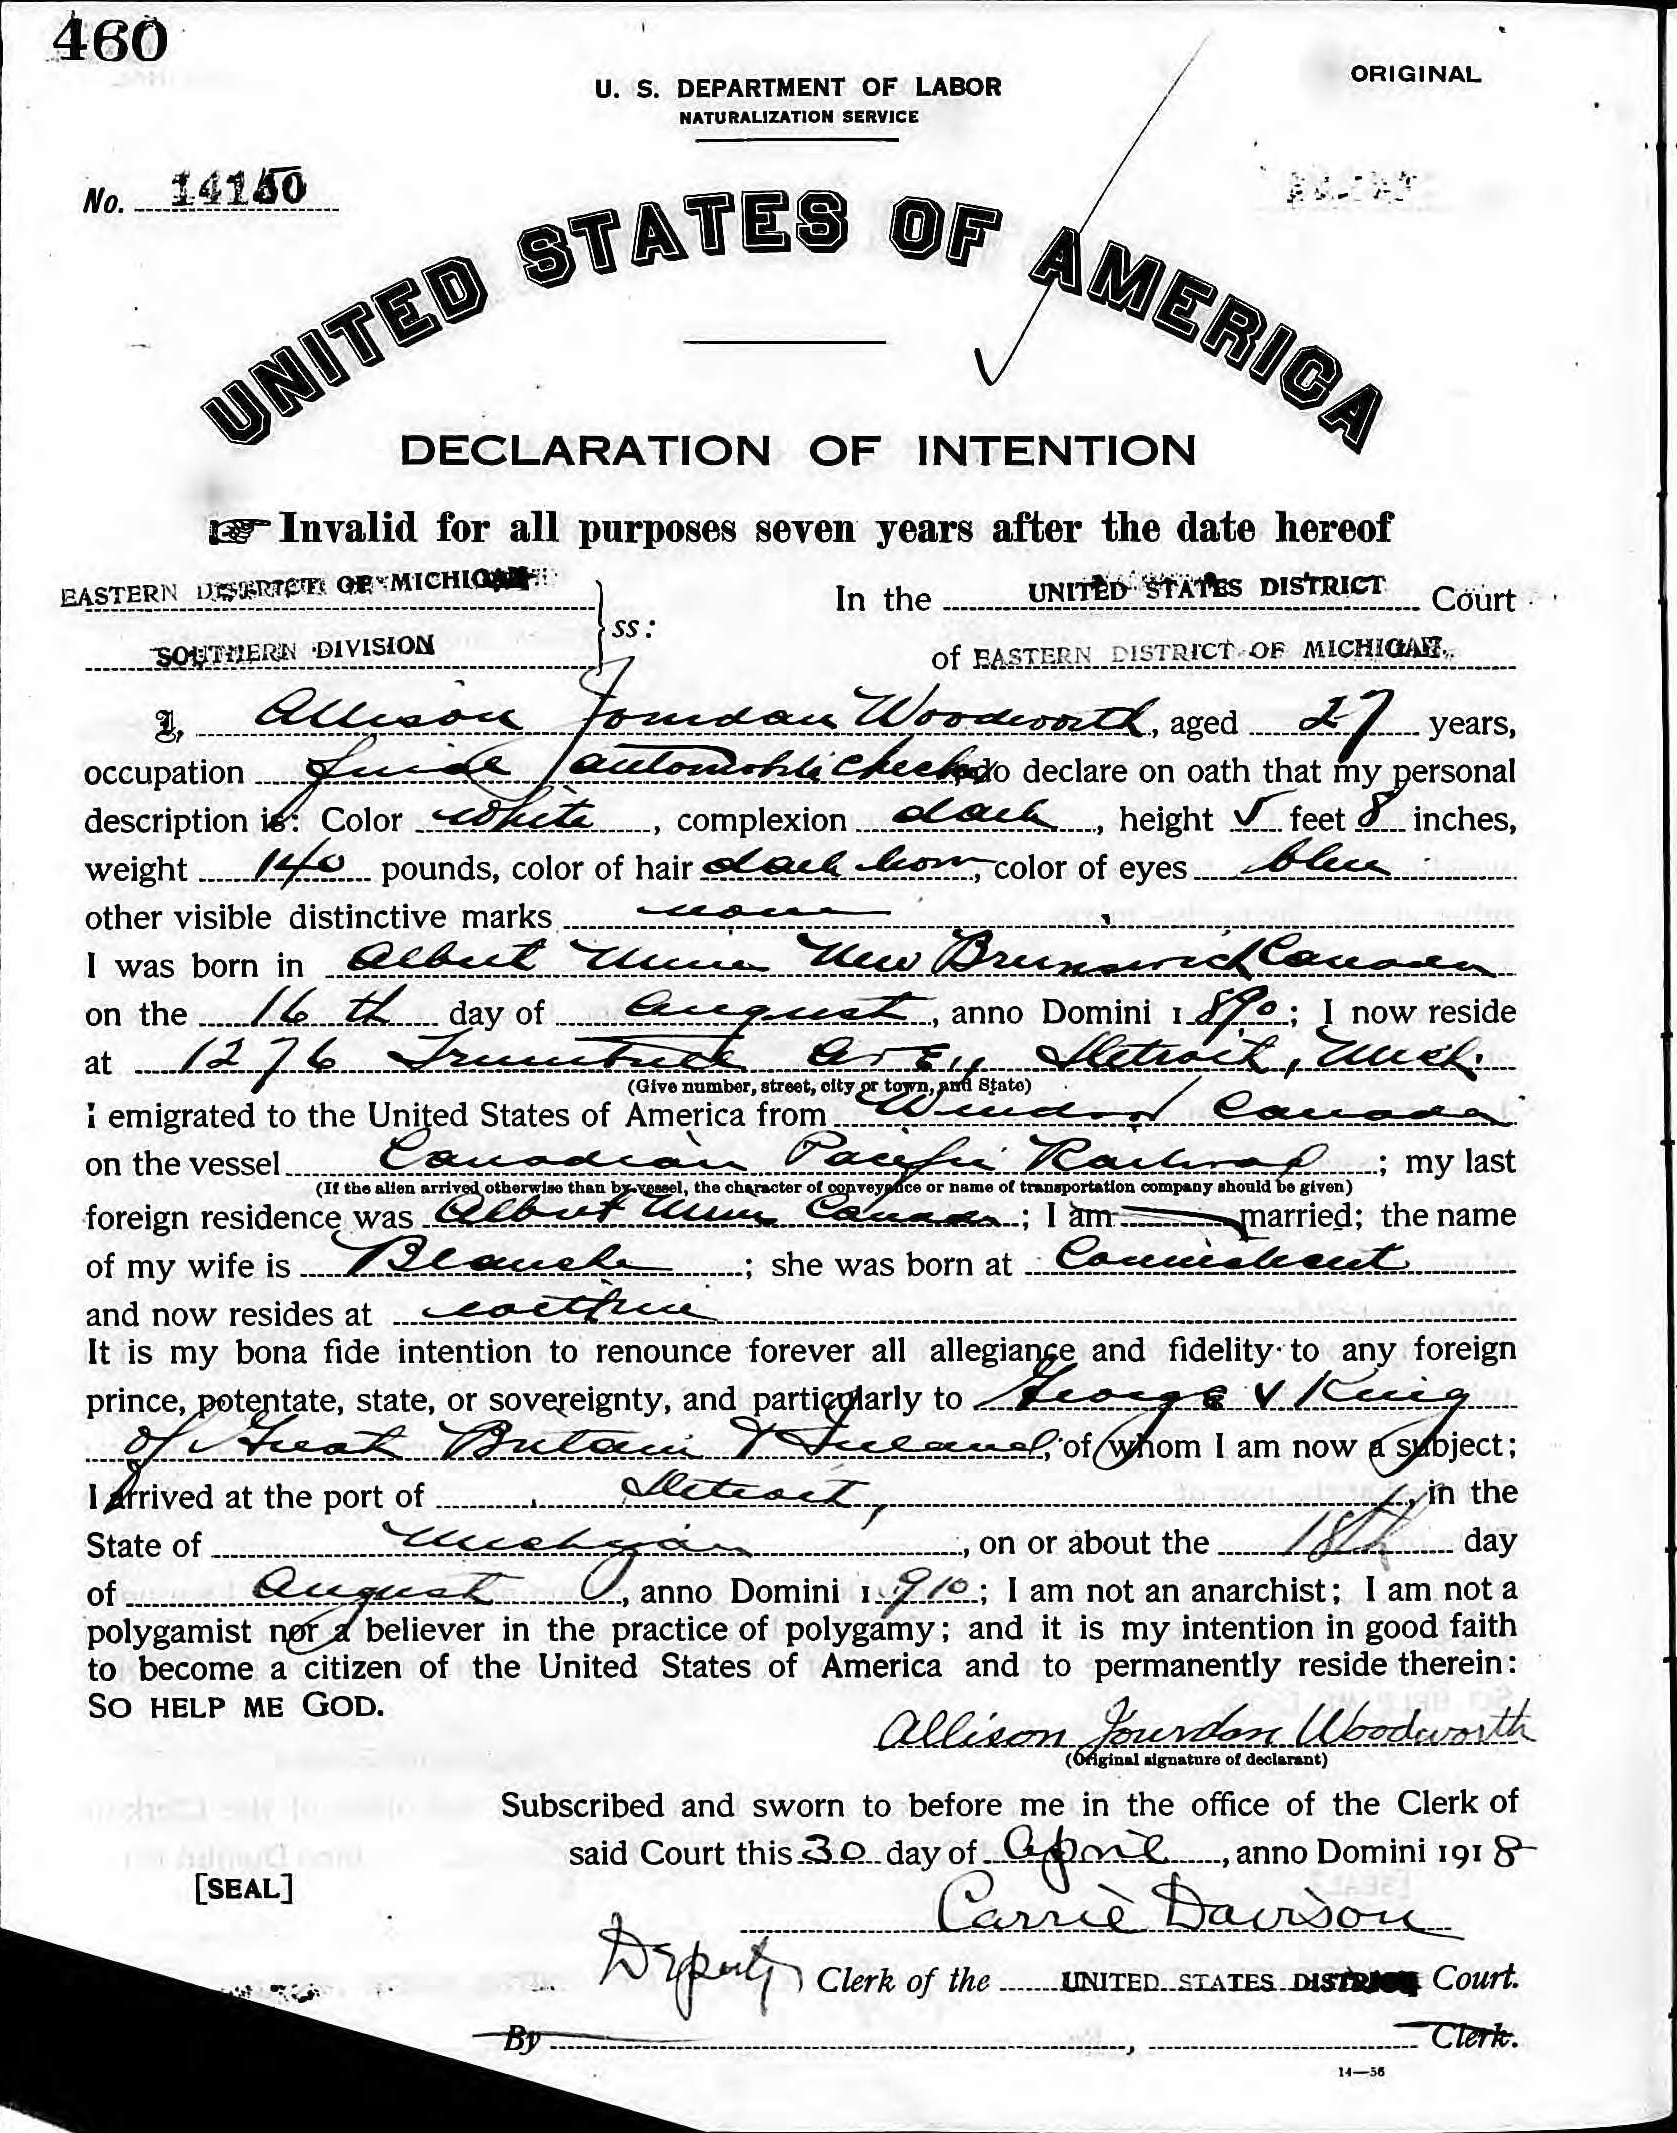 460
ORIGINAL
U. S. DEPARTMENT OF LABOR
NATURALIZATION SERVICE
No. 14150
UNITED STATES OF AMERICA
DECLARATION OF INTENTION
☞ Invalid for all purposes seven years after the date hereof
EASTERN DISTRICT OF MICHIGAN
SOUTHERN DIVISION
ss:
In the UNITED STATES DISTRICT Court
of EASTERN DISTRICT OF MICHIGAN
I, Allison Jourdan Woodworth, aged 27 years,
occupation automobile do declare on oath that my personal
description is: Color white, complexion dark, height 5 feet 8 inches,
weight 140 pounds, color of hair dark brown, color of eyes blue
other visible distinctive marks none
I was born in Albert Mines New Brunswick Canada
on the 16th day of August, anno Domini 1890; I now reside
at 1276 Trumbull Ave, Detroit, Mich.
(Give number, street, city or town, and State)
I emigrated to the United States of America from Windsor Canada
on the vessel Canadian Pacific Railroad; my last
(If the alien arrived otherwise than by vessel, the character of conveyance or name of transportation company should be given)
foreign residence was Albert Mines Canada; I am married; the name
of my wife is Blanche; she was born at Connecticut
and now resides at
It is my bona fide intention to renounce forever all allegiance and fidelity to any foreign
prince, potentate, state, or sovereignty, and particularly to George V King
of Great Britain & Ireland, of whom I am now a subject;
I arrived at the port of Detroit, in the
State of Michigan, on or about the 18th day
of August, anno Domini 1910; I am not an anarchist; I am not a
polygamist nor a believer in the practice of polygamy; and it is my intention in good faith
to become a citizen of the United States of America and to permanently reside therein:
SO HELP ME GOD.
Allison Jourdan Woodworth
(Original signature of declarant)
Subscribed and sworn to before me in the office of the Clerk of
said Court this 30 day of April, anno Domini 1918
[SEAL]
Carrie Davison
Deputy Clerk of the UNITED STATES DISTRICT Court.
By , Clerk.
14—56